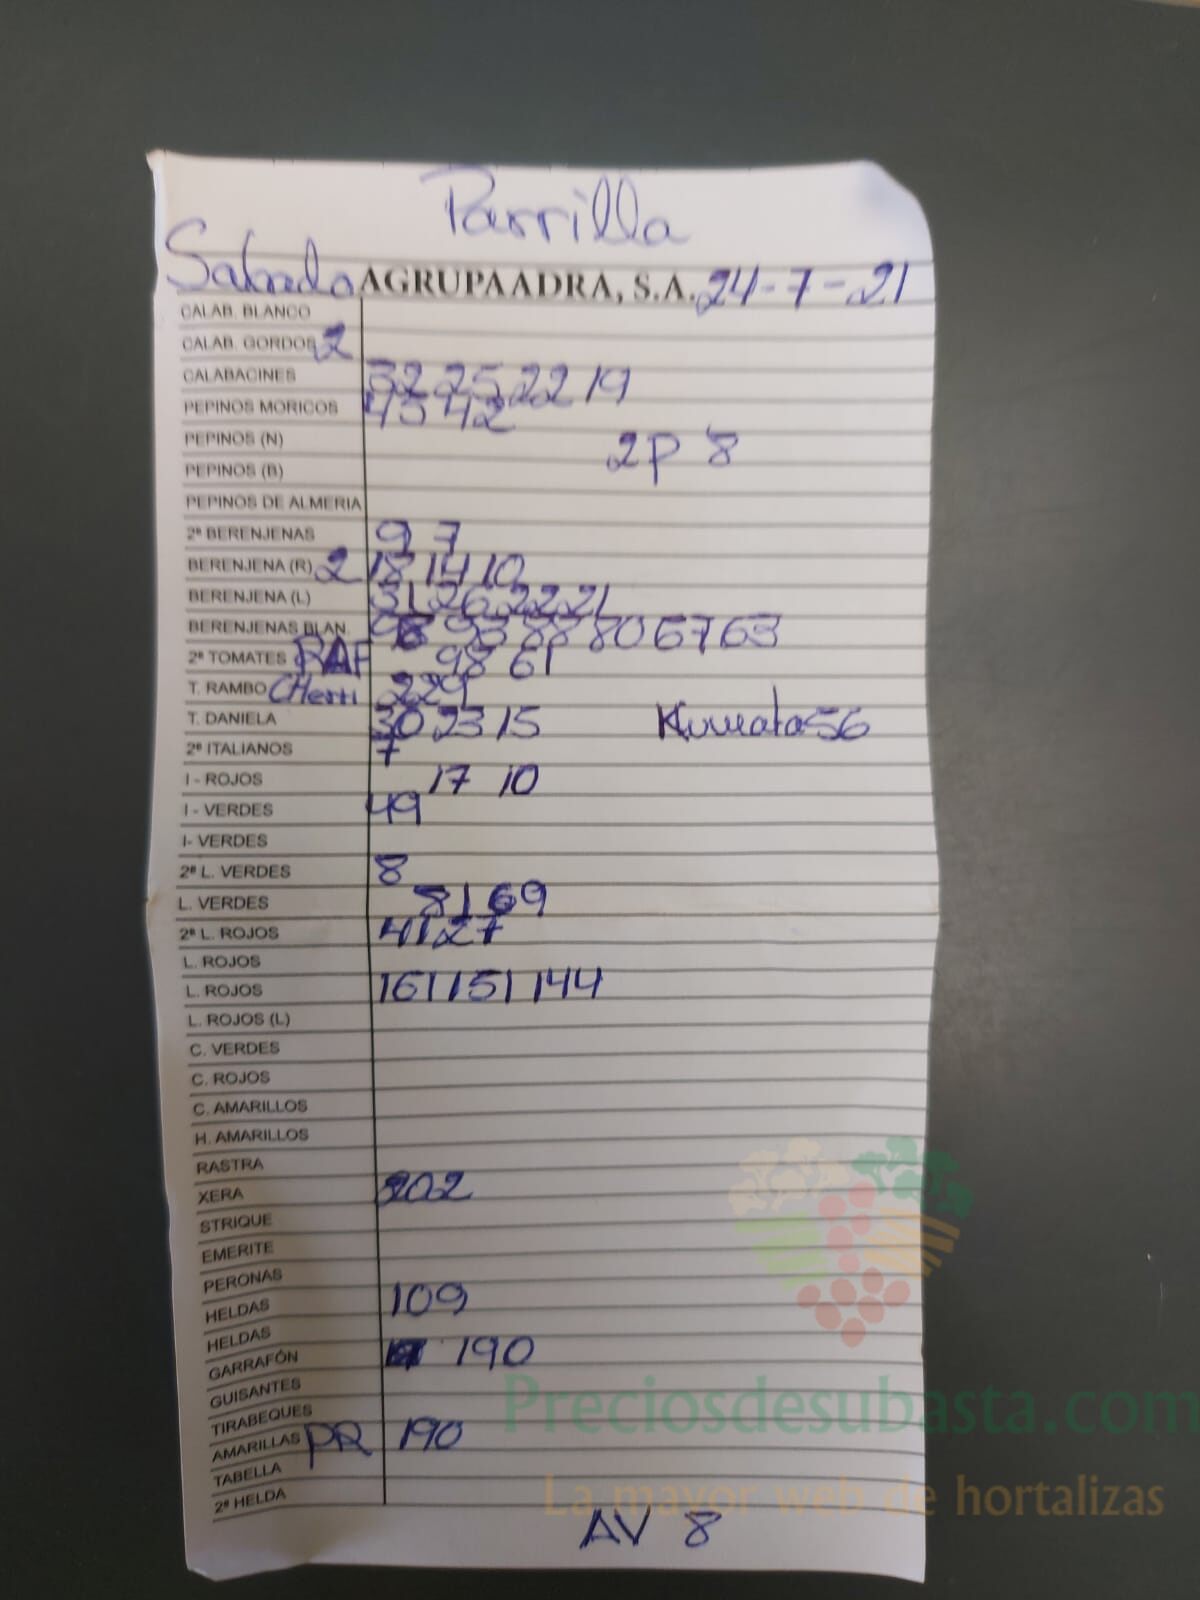 Parrilla
Sabado AGRUPAADRA, S.A. 24-7-21
CALAB. BLANCO
CALAB. GORDOS 2
CALABACINES 32 25 22 19
PEPINOS MORICOS 45 42
PEPINOS (N) 2P 8
PEPINOS (B)
PEPINOS DE ALMERIA
2ª BERENJENAS 9 7
BERENJENA (R) 2 18 14 10
BERENJENA (L) 31 26 22 21
BERENJENAS BLAN 98 93 88 80 67 63
2ª TOMATES RAF 98 61
T. RAMBO CHerri 229
T. DANIELA 30 23 15 Kumato 56
2ª ITALIANOS 7
I - ROJOS 17 10
I - VERDES 49
I- VERDES
2ª L. VERDES 8
L. VERDES 81 69
2ª L. ROJOS 41 27
L. ROJOS
L. ROJOS 161 151 144
L. ROJOS (L)
C. VERDES
C. ROJOS
C. AMARILLOS
H. AMARILLOS
RASTRA
XERA 202
STRIQUE
EMERITE
PERONAS
HELDAS 109
HELDAS
GARRAFÓN 190
GUISANTES
TIRABEQUES
AMARILLAS PR 190
TABELLA
2ª HELDA
AV 8
Preciosdesubasta.com
La mayor web de hortalizas